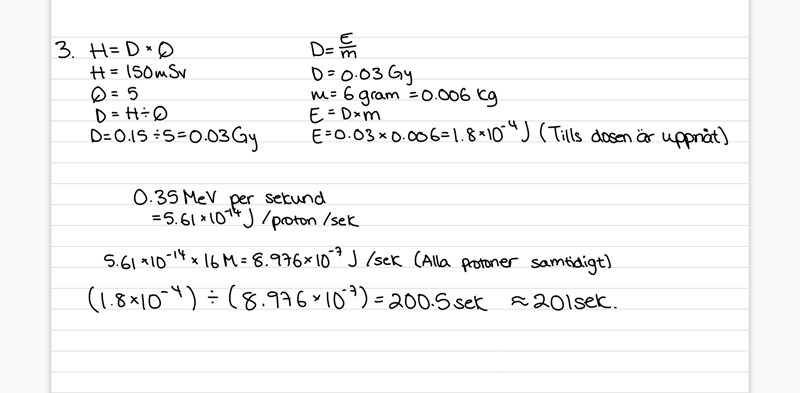 3. H = D × Q
H = 150mSv
Q = 5
D = H ÷ Q
D = 0.15 ÷ 5 = 0.03 Gy
D = E/m
D = 0.03 Gy
m = 6 gram = 0.006 kg
E = D×m
E = 0.03 × 0.006 = 1.8×10⁻⁴ J (Tills dosen är uppnåt)
0.35 MeV per sekund
= 5.61 × 10⁻¹⁴ J /proton /sek
5.61 × 10⁻¹⁴ × 16 M = 8.976 × 10⁻⁷ J /sek (Alla protoner samtidigt)
(1.8×10⁻⁴) ÷ (8.976 × 10⁻⁷) = 200.5 sek ≈ 201 sek.